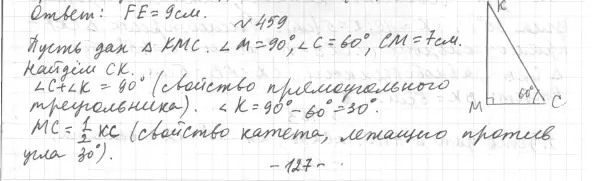 Ответ: FE = 9см.
№459
Пусть дан △ KMC. ∠M=90°, ∠C=60°, CM=7см.
Найдём CK.
∠C+∠K = 90° (свойство прямоугольного
треугольника). ∠K = 90°-60°=30°.
MC = 1/2 KC (свойство катета, лежащего против
угла 30°).
K
M
60°
C
-127-